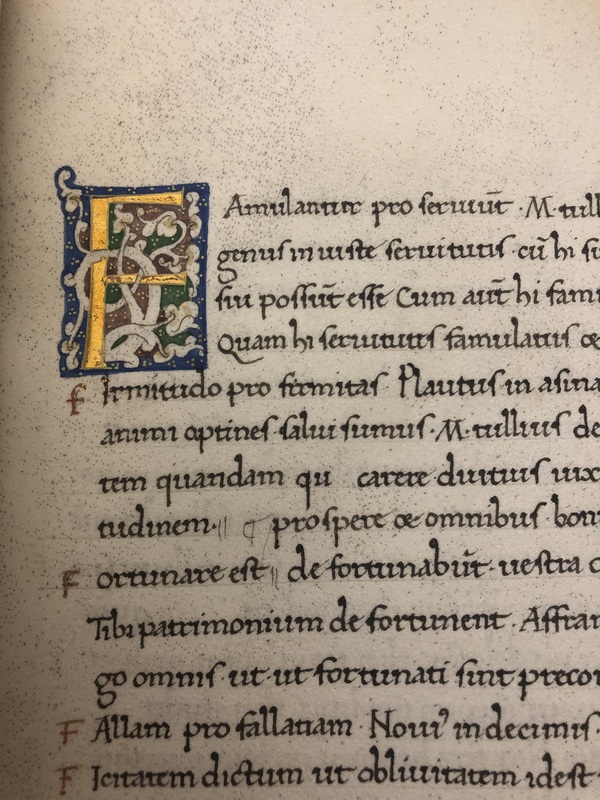 FAmulantur pro seruiūt · M · tull
genus in iuste seruitutis · cū hi
sui possūt esse Cum aūt hi fami
Quam hi seruitutis famulatus
f Irmitudo pro firmitas Plautus in asina
animi optines salui sumus · M · tullius de
tem quandam qu carere diuitius uix
tudinem · prospere œ omnibus bon
F ortunare est de fortunabūt · uestra c
Tibi patrimonium de fortunent · Affran
go omnis · ut · ut fortunati sint precor
F Allam pro fallatiam · Noui⁹ in decimis ·
F Icitatem dictum ut obliuitatem idest